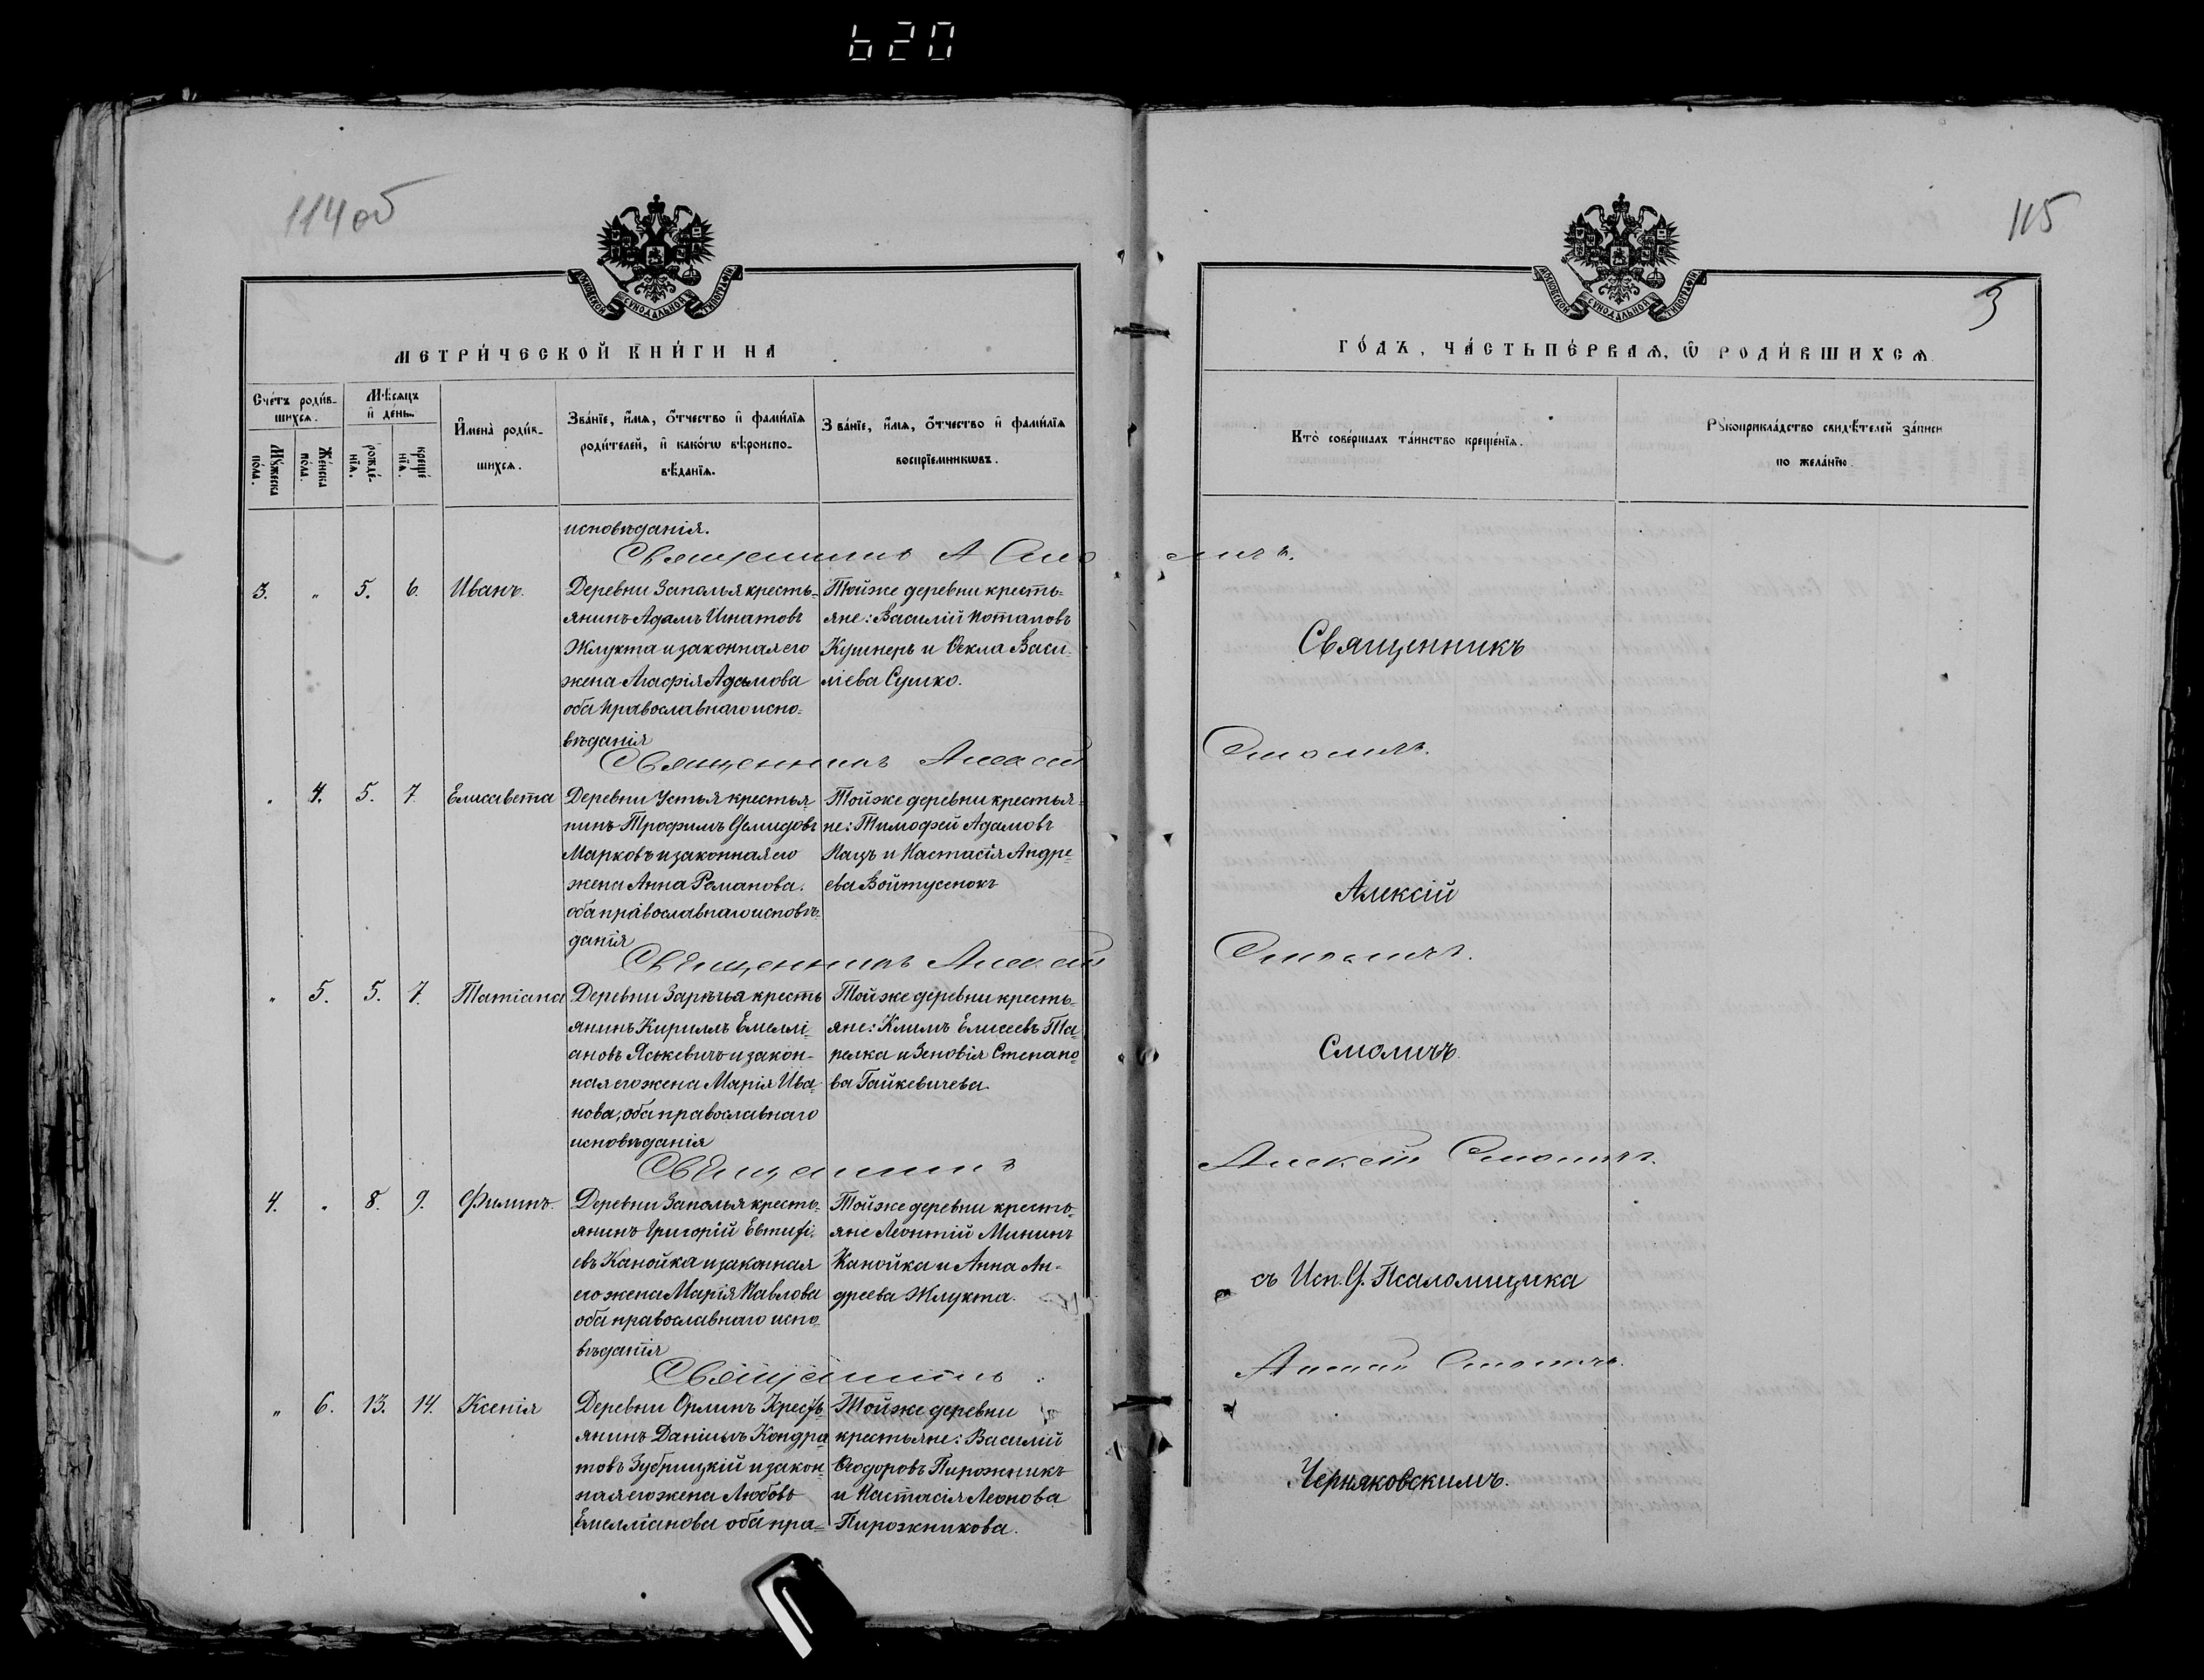 620
114 об
115
3
МОСКОВСКОЙ СѴНОДАЛЬНОЙ ТИПОГРАФІИ
МОСКОВСКОЙ СѴНОДАЛЬНОЙ ТИПОГРАФІИ
МЕТРИ́ЧЕСКОЙ КНИ́ГИ НА
ГО́ДЪ, ЧА́СТЬ ПЕ́РВАЯ, Ѿ РОДИ́ВШИХСЯ
Сче́тъ роди́в-
шихся.
Мꙋ́жеска
по́ла.
Же́нска
по́ла.
Мѣ́сяцъ
и҆ де́нь.
рожде́-
нїя.
креще́
нїя.
И҆мена̀ роди́в-
шихся.
Зва́нїе, и҆́мя, о҆́тчество и҆ фами́лїя
роди́телей, и҆ како́гѡ вѣроиспо-
вѣ́данїя.
Зва́нїе, и҆́мя, о҆́тчество и҆ фами́лїя
воспрїе́мникѡвъ.
Кто̀ соверша́лъ та́инство креще́нїя.
Рꙋкоприкла́дство свидѣ́телей за́писи
по жела́нїю.
исповѣданія.
Священникъ А Смоличъ.
3. „ 5. 6. Иванъ.
Деревни Заполья кресть-
янинъ Адамъ Игнатовъ
Жлукта и законная его
жена Агафія Адамова
оба православнаго испо-
вѣданія
Тойже деревни кресть-
яне: Василій Потаповъ
Кушнеръ и Ѳекла Васи-
ліева Сушко.
Священникъ
Священникъ Алексій Смоличъ.
„ 4. 5. 7. Елисавета
Деревни Устья крестья
нинъ Трофимъ Демидовъ
Марковъ и законная его
жена Анна Романова.
оба православнаго исповѣ-
данія
Тойже деревни крестья-
не: Тимофей Адамовъ
Кацъ и Настасія Андре-
ева Войтусенокъ
Алексій
Священникъ Алексій Смоличъ.
„ 5. 5. 7. Татіана
Деревни Зарѣчья кресть
янинъ Кириллъ Емелли-
ановъ Яськевичъ и закон-
ная его жена Марія Ива-
нова, оба православнаго
исповѣданія
Тойже деревни кресть-
яне: Климъ Елисеевъ Та
релка и Зеновія Степано-
ва Гайкевичева.
Смоличъ.
Священникъ Алексій Смоличъ.
4. „ 8. 9. Филипъ.
Деревни Заполья кресть-
янинъ Григорій Евтифі-
евъ Канойка и законная
его жена Марія Павлова
оба православнаго испо-
вѣданія
Тойже деревни кресть-
яне Леонтій Мининъ
Канойка и Анна Ан-
дреева Жлукта.
съ Исп. Д. Псаломщика
Священникъ Алексій Смоличъ.
„ 6. 13. 14. Ксенія
Деревни Орлинъ Кресть-
янинъ Даніилъ Кондра
товъ Зубрицкій и закон-
ная его жена Любовь
Емелліанова оба пра-
Тойже деревни
крестьяне: Василій
Ѳеодоровъ Пирожникъ
и Настасія Леонова
Пирожникова.
Черняковскимъ.